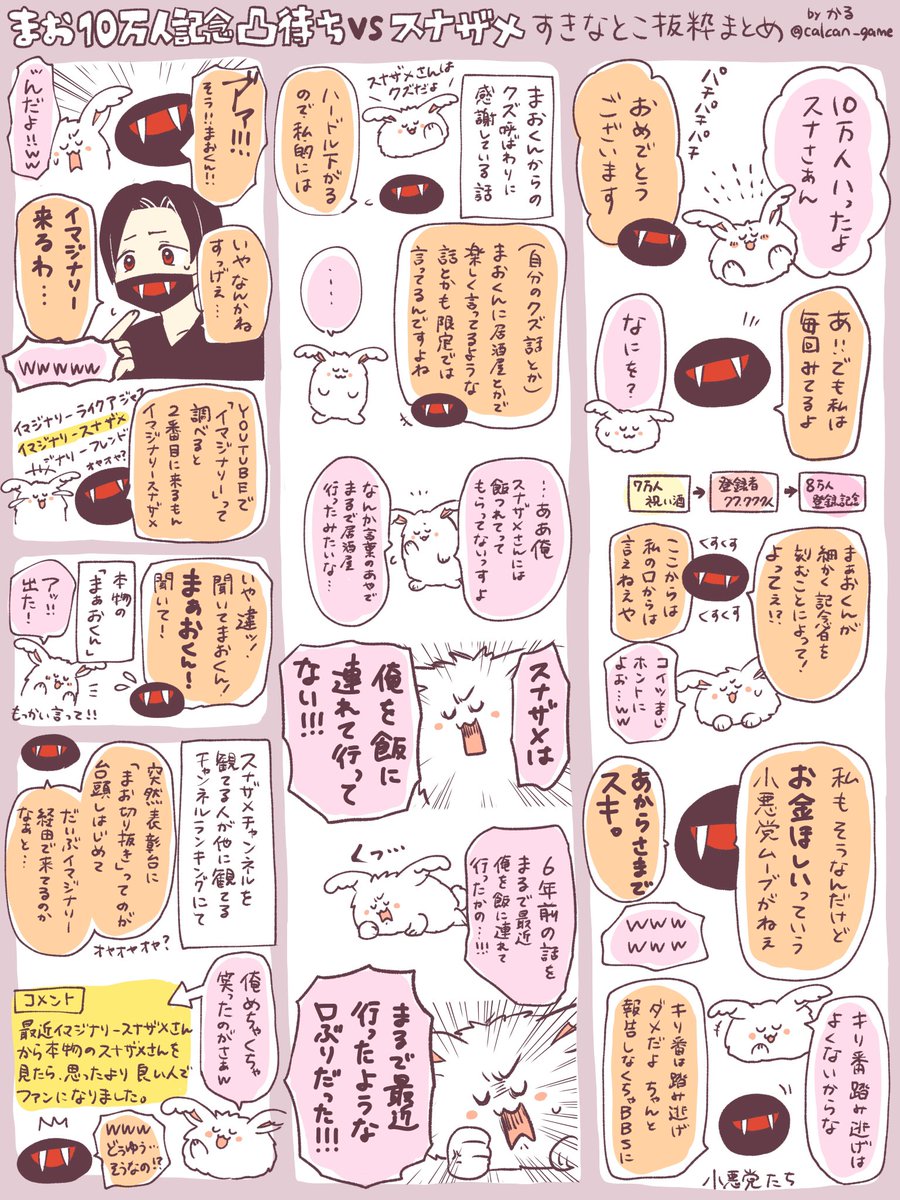 まお10万人記念凸待ちvsスナザメ すきなとこ抜粋まとめ
by かる
@calcan_game
10万人いったよ
スナさぁん
パチパチパチパチ
おめでとう
ございます
あ、でも私は
毎回みてるよ
なにを?
7万人
祝い酒
登録者
77,777人
8万人
登録記念
まぁおくんが
細かく記念者を
刻むことによって!
よってぇ!?
くすくす
くすくす
ここからは
私の口からは
言えねえや
コイツまじ
ホントに
よぉ…ww
私もそうなんだけど
お金ほしいっていう
小悪党ムーブがねぇ
あからさまで
スキ。
www
www
キリ番踏み逃げは
よくないからな
キリ番は踏み逃げ
ダメだよ ちゃんと
報告しなくちゃBBSに
小悪党たち
まおくんからの
クズ呼ばわりに
感謝している話
スナザメさんは
クズだよ!
ハードル下がる
ので私的には
(自分のクズ話とか)
まおくんに居酒屋とかで
楽しく言ってるような
話とかも限定では
言ってるんですよね
……
…ああ俺
スナザメさんには
飯つれてって
もらってないっすよ
なんか言葉のあやで
まるで居酒屋
行ったみたいな…
スナザメは
俺を飯に
連れて行って
ない!!!
6年前の話を
まるで最近
俺を飯に連れて
行ったかの…!!!
くっ…
まるで最近
行ったような
口ぶりだった!!!
ブァァ!!!
そう!!まおくん!!
ッんだよ!!ww
いやなんかね
すっげぇ…
イマジナリー
来るわ…
wwwww
YOUTUBEで
「イマジナリー」って
調べると
2番目に来るもん
イマジナリースナザメ
イマジナリーライクアジャブ
イマジナリースナザメ
イマジナリーフレンド
オヤオヤ?
いや違ッ!
聞いてまおくん!
まぁおくん!
聞いて!
本物の
「まぁおくん」
アッ!!
出た!
もっかい言って!!
スナザメチャンネルを
観てる人が他に観てる
チャンネルランキングにて
突然表彰台に
「まお切り抜き」ってのが
台頭しはじめて
だいぶイマジナリー
経由で来てるのか
なぁと…
オヤオヤオヤ?
俺めちゃくちゃ
笑ったのがさぁw
コメント
最近イマジナリースナザメさん
から本物のスナザメさんを
見たら、思ったより良い人で
ファンになりました。
www
どうゆう…
そうなの!?